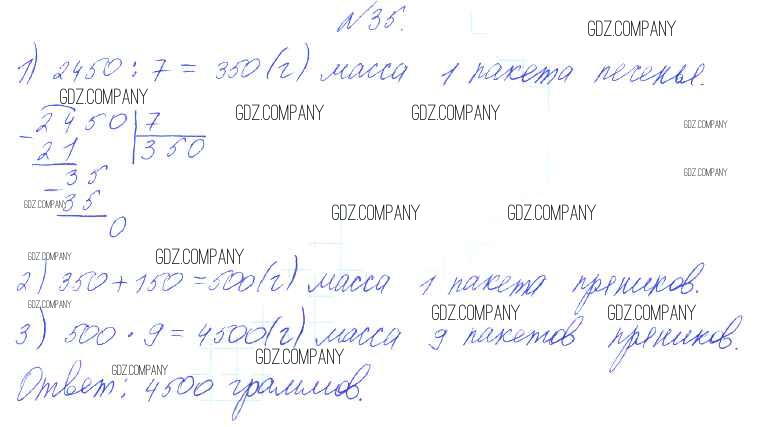 №35.
GDZ.COMPANY
1) 2450 : 7 = 350 (г) масса 1 пакета печенья.
GDZ.COMPANY
GDZ.COMPANY GDZ.COMPANY
- 2450 | 7
GDZ.COMPANY
21 350
- 35
GDZ.COMPANY
GDZ.COMPANY 35
GDZ.COMPANY GDZ.COMPANY
0
GDZ.COMPANY GDZ.COMPANY
2) 350 + 150 = 500 (г) масса 1 пакета пряников.
GDZ.COMPANY GDZ.COMPANY GDZ.COMPANY
3) 500 · 9 = 4500 (г) масса 9 пакетов пряников.
GDZ.COMPANY
GDZ.COMPANY
Ответ: 4500 граммов.